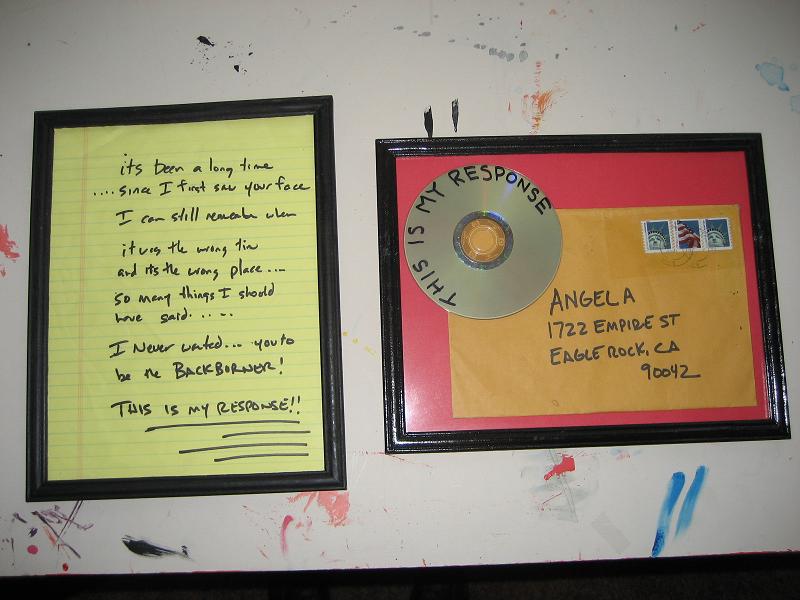 its been a long time
....since I first saw your face
I can still remember when
it was the wrong tim
and its the wrong place...
so many things I should
have said.....
I Never wanted... you to
be the BACKBORNER!
THIS IS MY RESPONSE!!
THIS IS MY RESPONSE
ANGELA
1722 EMPIRE ST
EAGLE ROCK, CA
90042